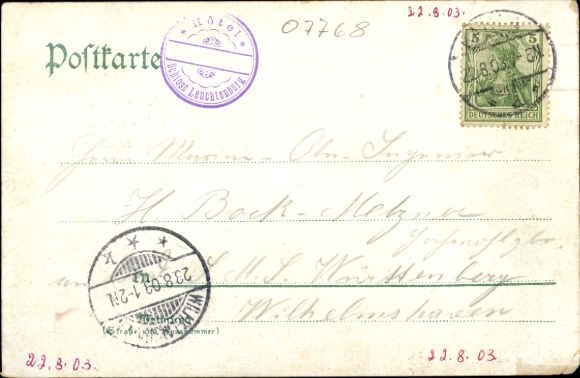 22.8.03.
07768
Postkarte
* Hôtel *
Schloss Leuchtenburg
5 5
22.8.03
DEUTSCHES REICH
Herrn Marine-Ober-Ingenieur
H Bock-Metzner
an S. M. S. Württemberg
Wilhelmshaven
in
WILHELMSHAVEN
23.8.03.1-2N
* k
(Straße und Hausnummer)
22.8.03.
22.8.03.